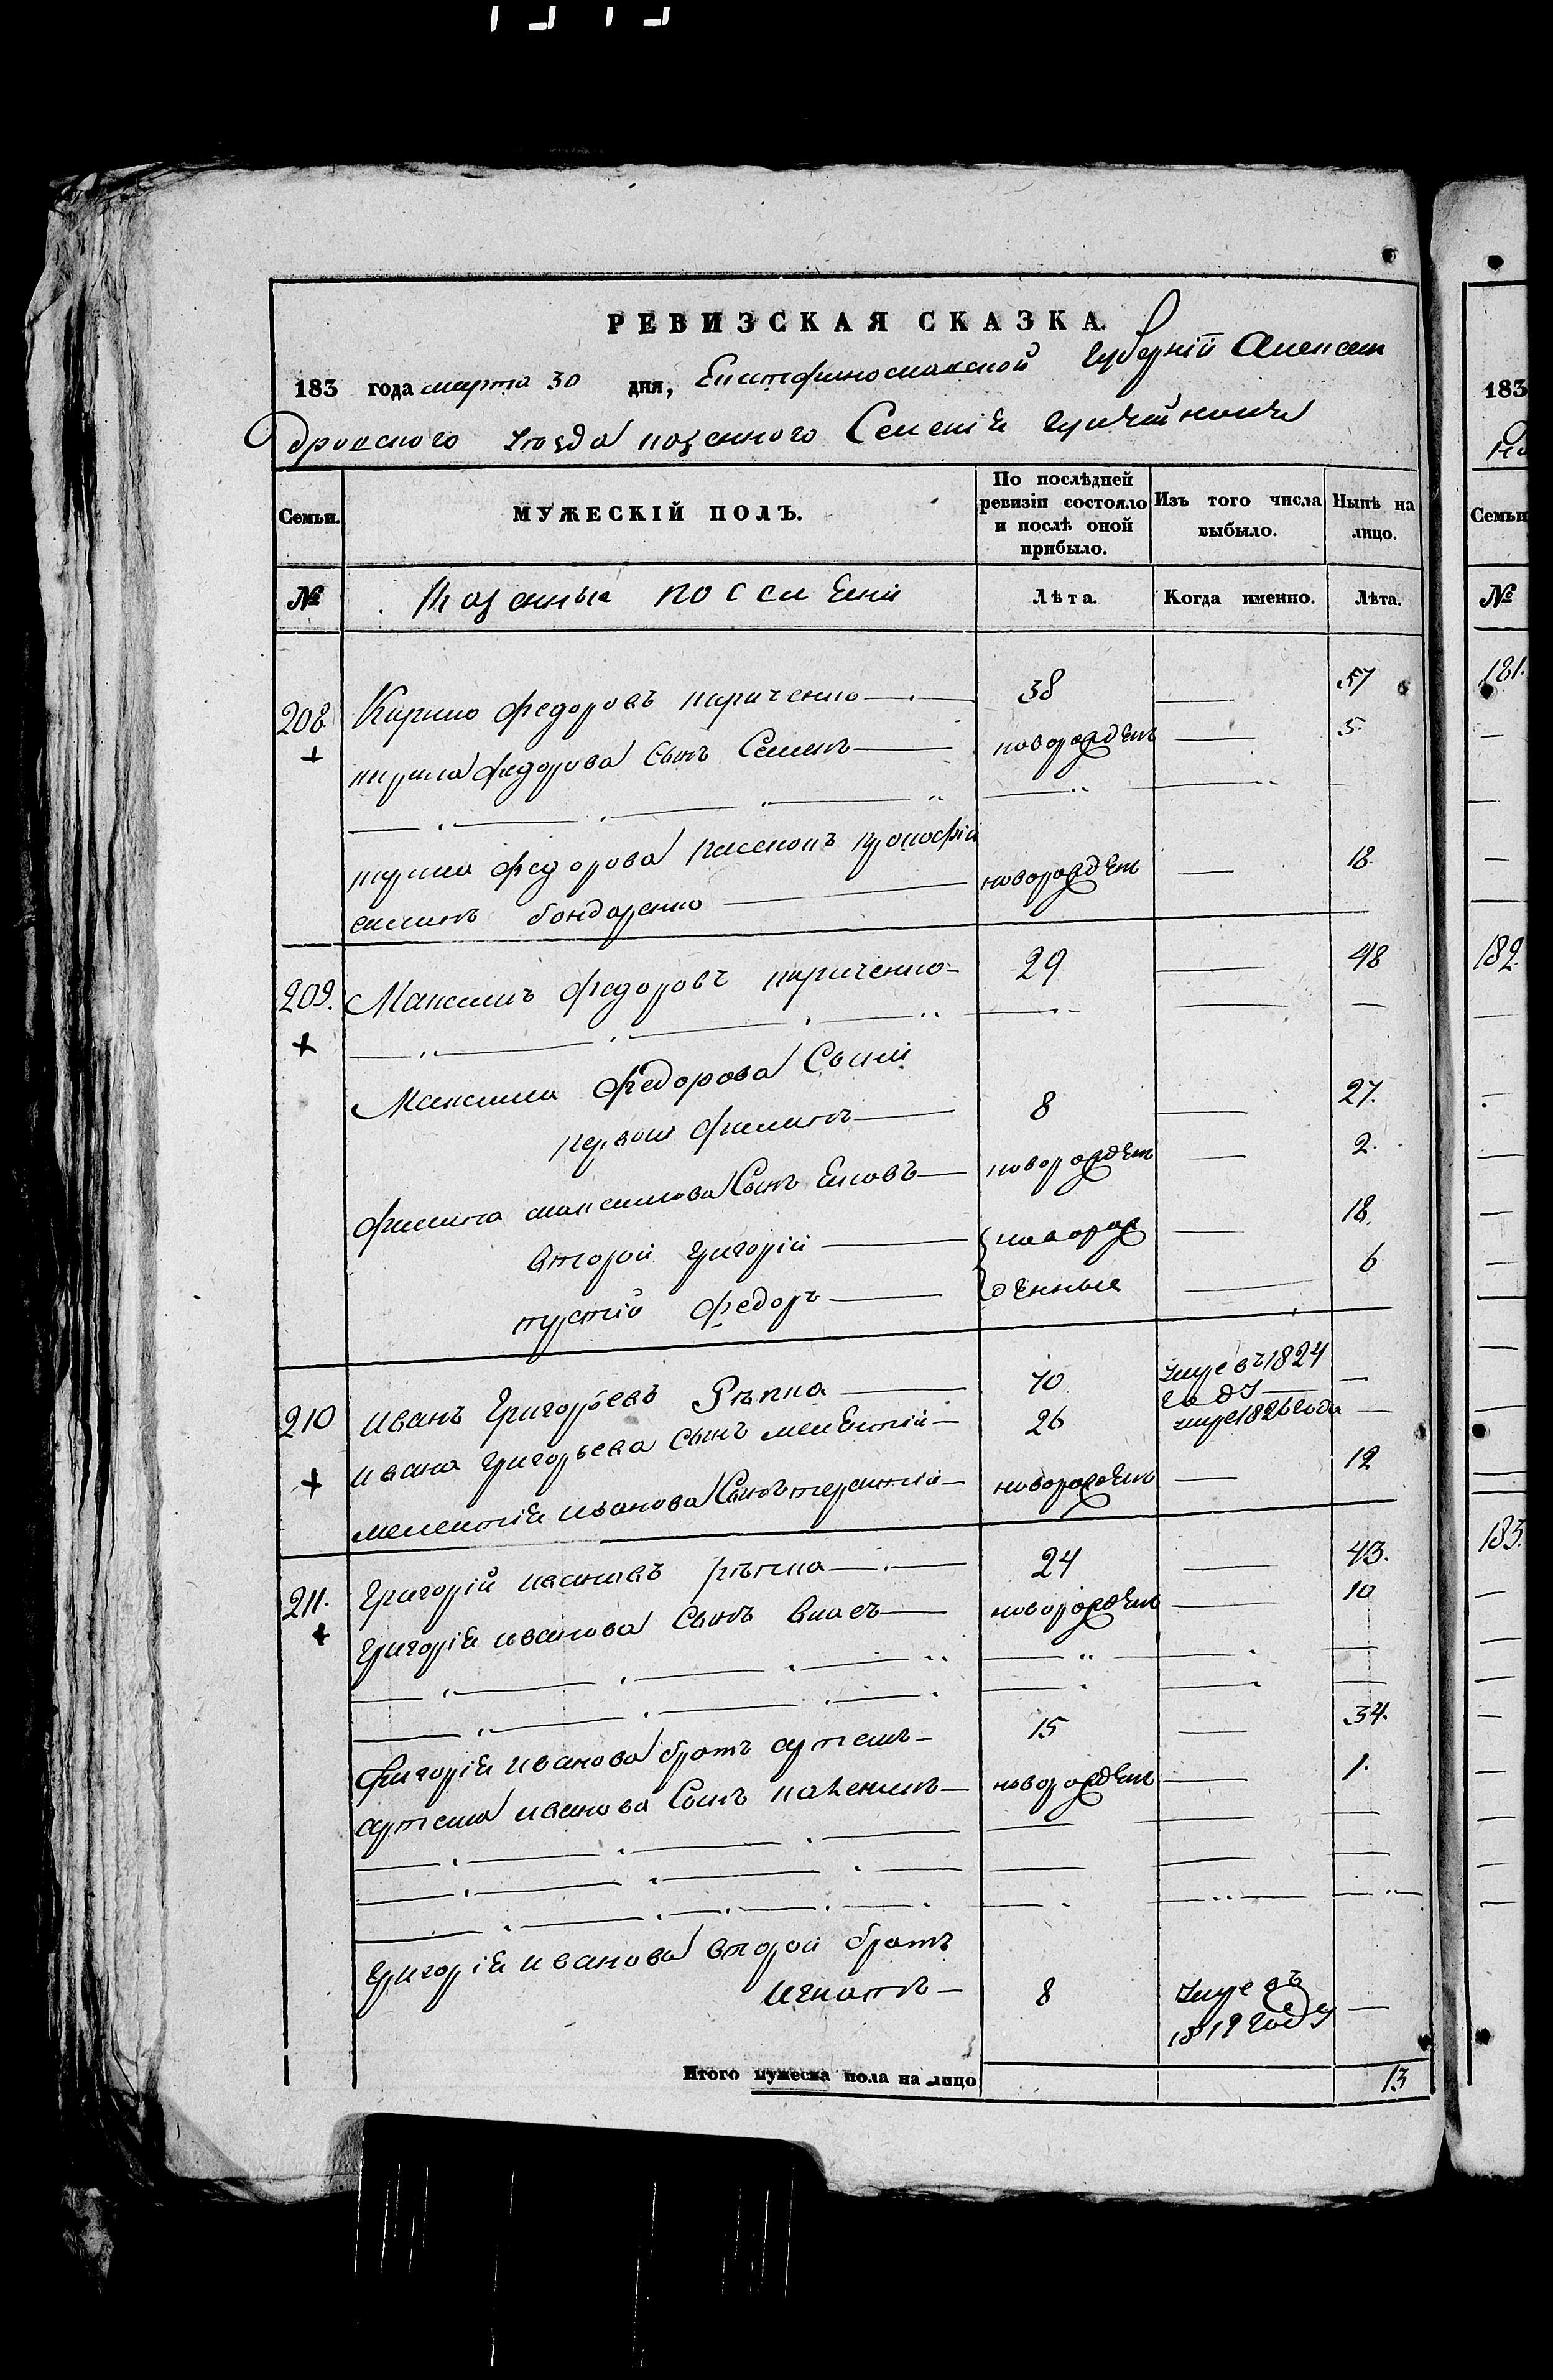 РЕВИЗСКАЯ СКАЗКА.
183 года марта 30 дня, Екатеринослаской Губерніи Алексан
дровского уезда казенного Селенія Гуляйполя
Семьи. МУЖЕСКІЙ ПОЛЪ. По послѣдней ревизіи состояло и послѣ оной прибыло. Изъ того числа выбыло. Нынѣ на лицо.
№ Казенные поселяни Лѣта. Когда именно. Лѣта.
208. Кирило Федоровъ Кириченко 38 — 57
Кирила Федорова Сынъ Семенъ новорожденъ — 5.
Кирила Федорова
бондаренко новорожден — 18.
209. Максимъ Федоровъ Кириченко 29 — 48
Максима Федорова Сыни
первой Филипъ 8 — 27.
Филипа максимова Сынъ новорожденъ — 2.
второй григорій новорож — 18.
третій Федоръ денные — 6
210 иванъ Григорьевъ Рѣпка 70 умре въ 1824 году —
ивана Григорьева Сынъ мелентій 26 умре 1826 года —
мелентія иванова Сынъ терентій новорожденъ — 12
211. Григорій ивановъ рѣпка 24 — 43.
Григорія иванова Сынъ власъ новорожденъ — 10
Григорія иванова братъ артемъ 15 — 34.
артема иванова Сынъ новорожденъ — 1.
Григорія иванова второй братъ
игнатъ 8 умре въ
1819 году —
Итого мужеска пола на лицо 13
183
Семьи
№
181.
182.
183.